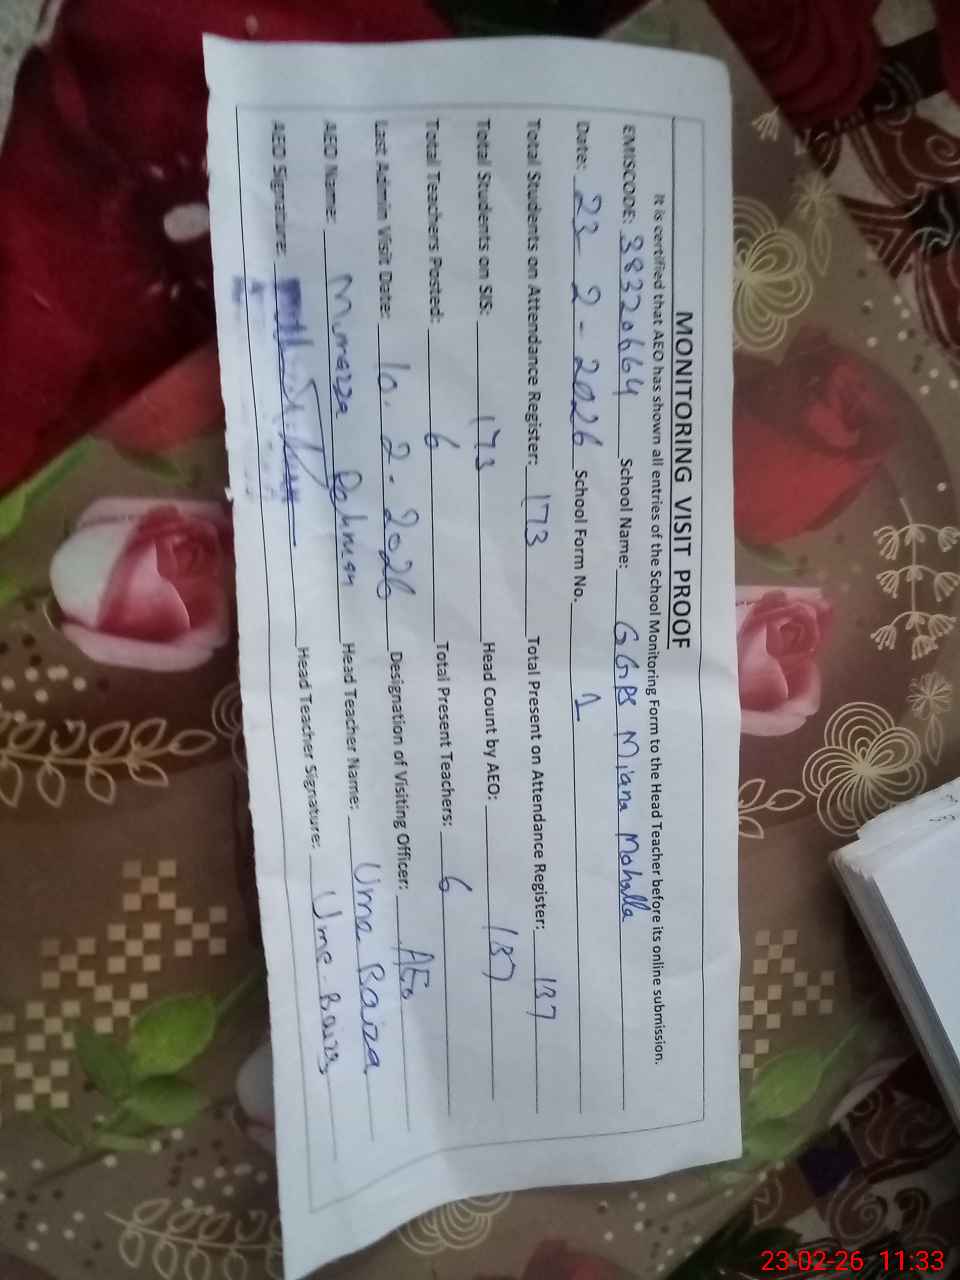 MONITORING VISIT PROOF
It is certified that AEO has shown all entries of the School Monitoring Form to the Head Teacher before its online submission.
EMISCODE: 38320664 School Name: GGPS Miana Mohalla
Date: 23-2-2026 School Form No. 1
Total Students on Attendance Register: 173 Total Present on Attendance Register: 137
Total Students on SIS: 173 Head Count by AEO: 137
Total Teachers Posted: 6 Total Present Teachers: 6
Last Admin Visit Date: 10.2.2026 Designation of Visiting Officer: AEO
AEO Name: Rehman Head Teacher Name: Ume Baiza
AEO Signature: Head Teacher Signature: Ume-Baiza
23-02-26 11:33